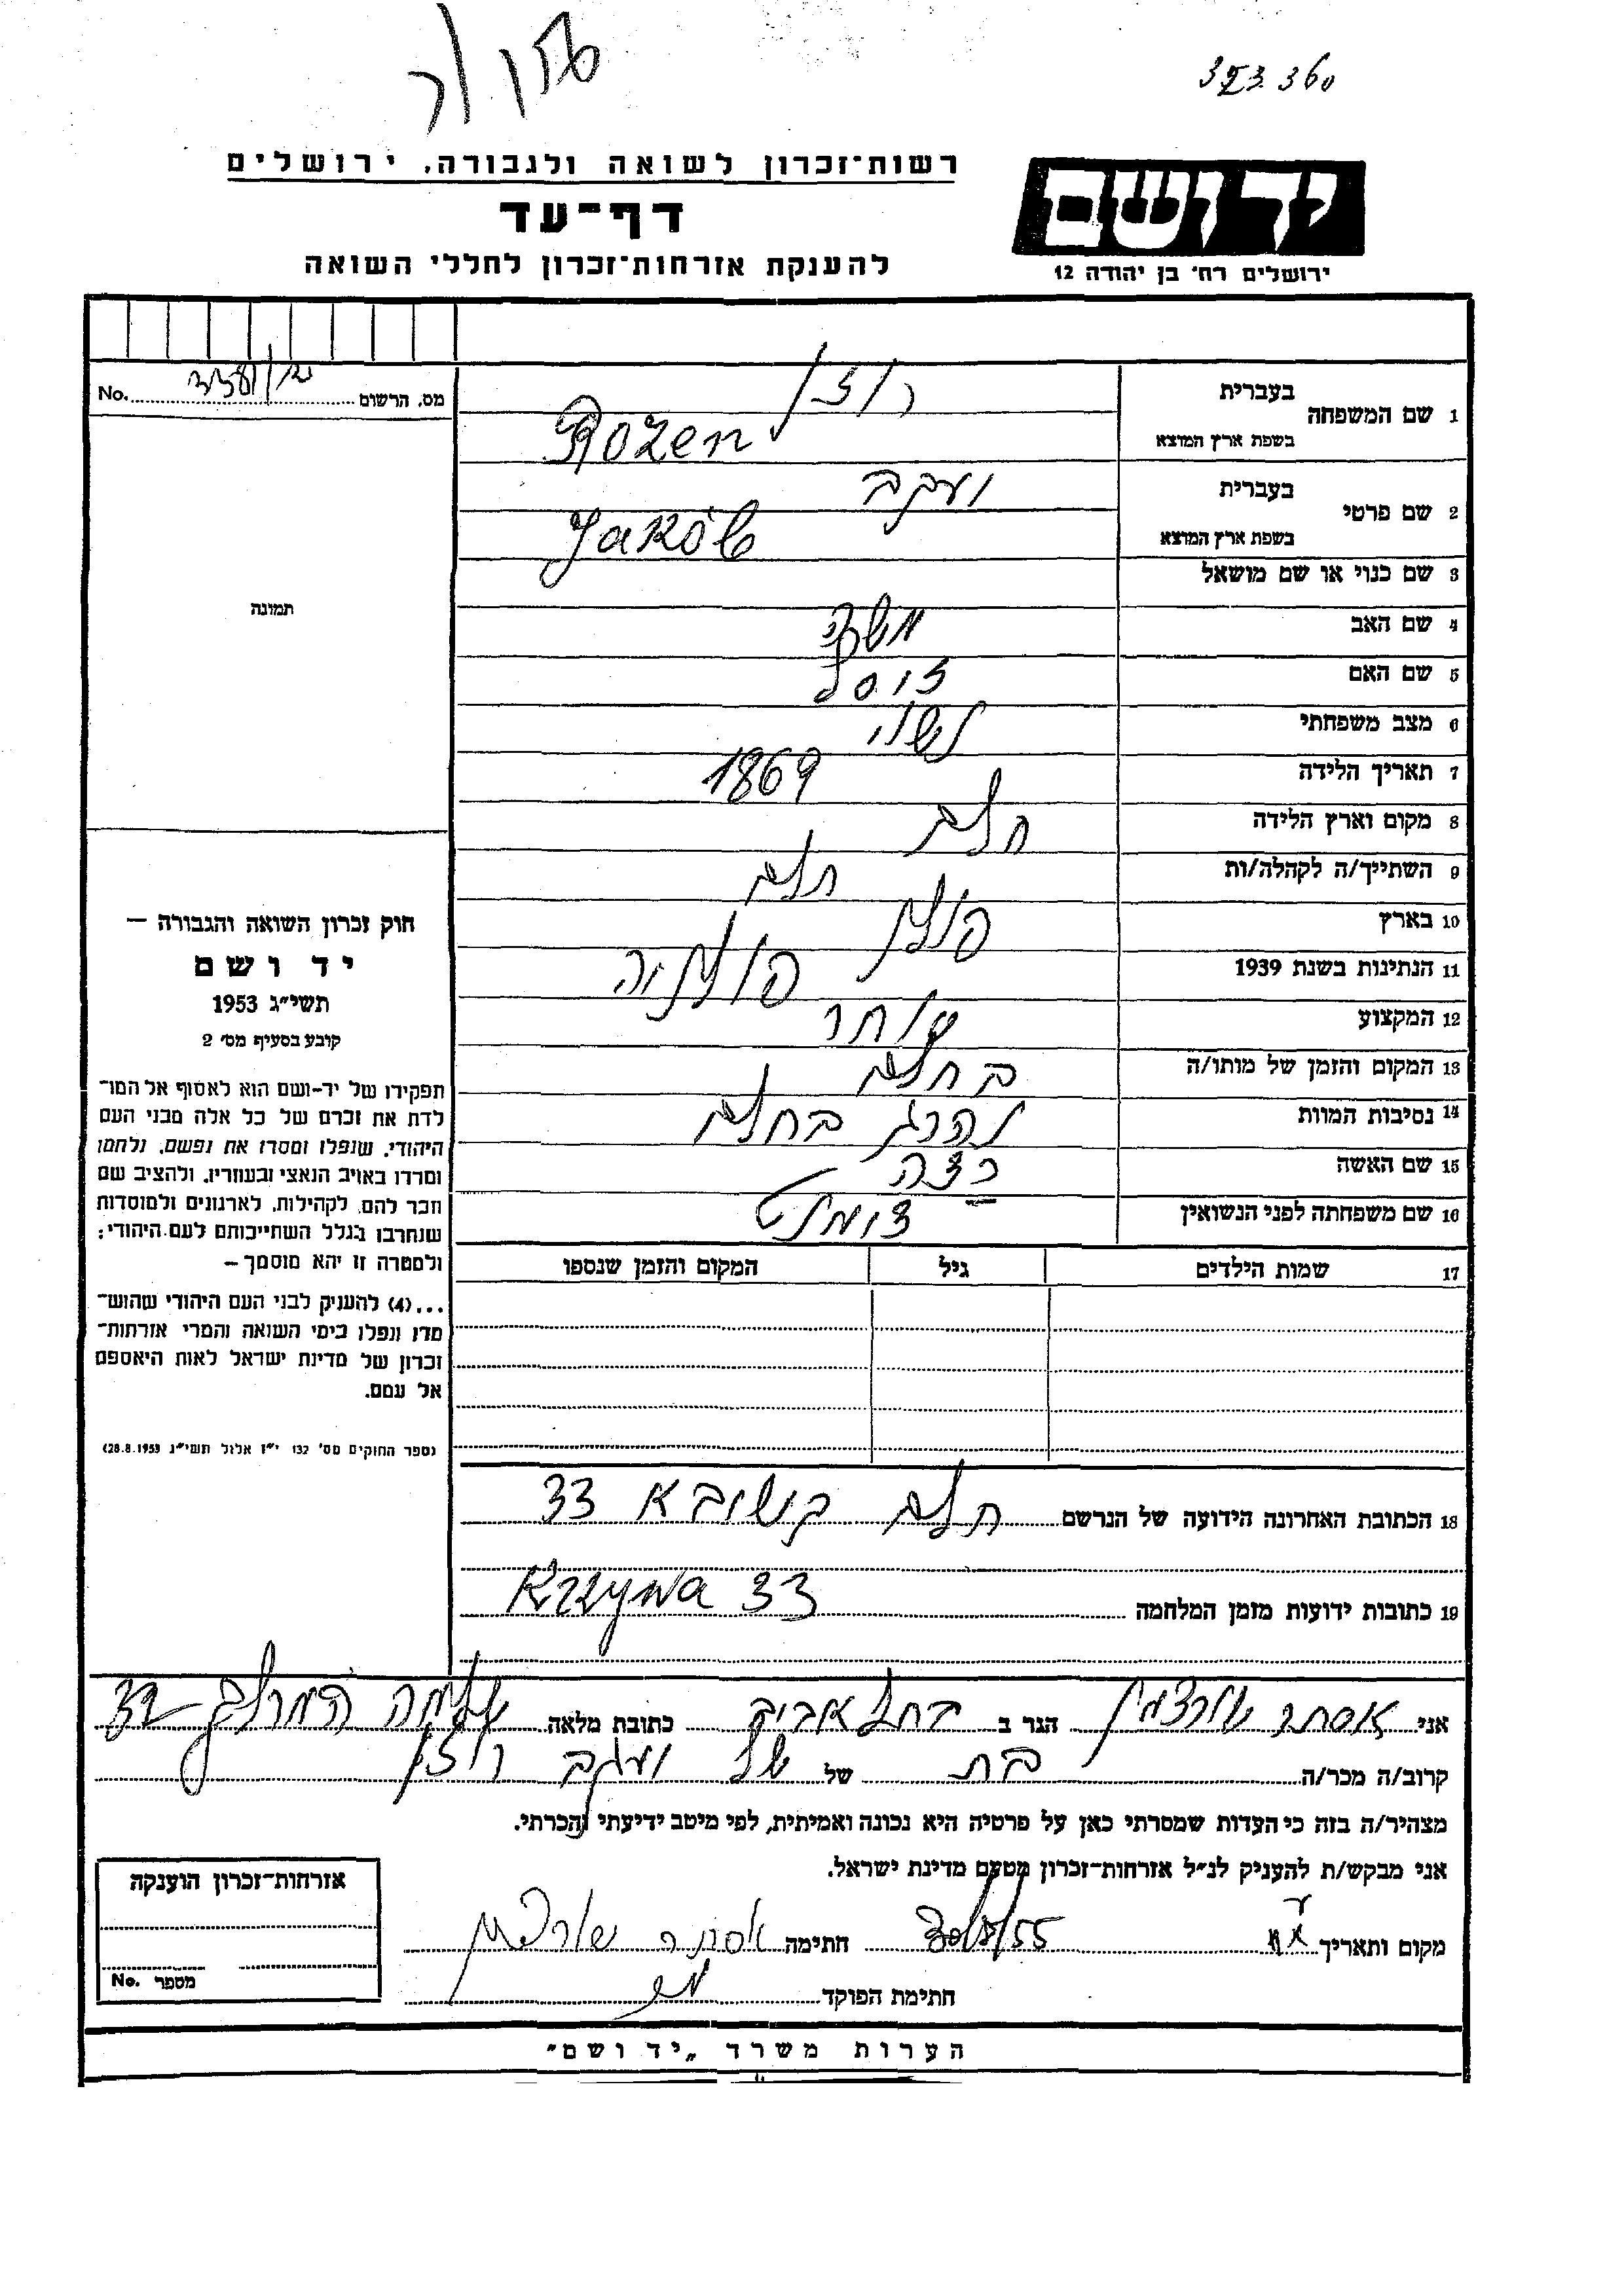 רוזן
373.360
רשות־זכרון לשואה ולגבורה, ירושלים
דף־עד
להענקת אזרחות־זכרון לחללי השואה
יד ושם
ירושלים רח' בן יהודה 12
מס. הרשום No.
תמונה
1 שם המשפחה בעברית רוזן
בשפת ארץ המוצא Rozen
2 שם פרטי בעברית יעקב
בשפת ארץ המוצא Jakób
3 שם כנוי או שם מושאל
4 שם האב משה
5 שם האם
6 מצב משפחתי נשוי
7 תאריך הלידה 1869
8 מקום וארץ הלידה חלם
9 השתייך/ה לקהלה/ות חלם
10 בארץ פולין
11 הנתינות בשנת 1939 פולניה
12 המקצוע סוחר
13 המקום והזמן של מותו/ה בחלם
14 נסיבות המוות נהרג בחלם
15 שם האשה
16 שם משפחתה לפני הנשואין
17 שמות הילדים גיל המקום והזמן שנספו
18 הכתובת האחרונה הידועה של הנרשם חלם 33
19 כתובות ידועות מזמן המלחמה Krzywa 33
חוק זכרון השואה והגבורה —
יד ושם
תשי״ג 1953
קובע בסעיף מס' 2
תפקידו של יד-ושם הוא לאסוף אל המו־
לדת את זכרם של כל אלה מבני העם
היהודי, שנפלו ומסרו את נפשם, נלחמו
ומרדו באויב הנאצי ובעוזריו, ולהציב שם
וזכר להם, לקהילות, לארגונים ולמוסדות
שנחרבו בגלל השתייכותם לעם היהודי;
ולמטרה זו יהא מוסמך —
...(4) להעניק לבני העם היהודי שהוש־
מדו ונפלו בימי השואה והמרי אזרחות־
זכרון של מדינת ישראל לאות היאספם
אל עמם.
(ספר החוקים מס' 132 י״ז אלול תשי״ג 28.8.1953)
אני אסתר הגר ב בתל אביב כתובת מלאה שלמה המלך
קרוב/ה מכר/ה בת של של יעקב רוזן
מצהיר/ה בזה כי העדות שמסרתי כאן על פרטיה היא נכונה ואמיתית, לפי מיטב ידיעתי והכרתי.
אני מבקש/ת להעניק לנ״ל אזרחות־זכרון מטעם מדינת ישראל.
מקום ותאריך חתימה אסתר
חתימת הפוקד
אזרחות־זכרון הוענקה
מספר No.
הערות משרד „יד ושם״